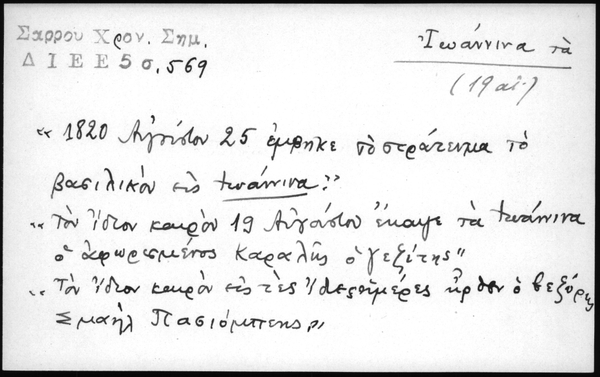 Σαρρου Χρον. Σημ.
Δ Ι Ε Ε 5 σ. 569
Ἰωάννινα τὰ
(19 αἰ.)
« 1820 Αὐγούστου 25 ἐμβῆκε τὸ στράτευμα τὸ
βασιλικὸν εἰς Ἰωάννινα»
« Τὸν ἴδιον καιρὸν 19 Αὐγούστου ἔκαψε τὰ Ἰωάννινα
ὁ ἀφωρισμένος Καραλῆς ὁ γεζίτης»
« Τὸν ἴδιον καιρὸν εἰς τὲς ἡμέρες ἦρθεν ὁ βεζύρης
Σμαὴλ Πασιόμπεης»